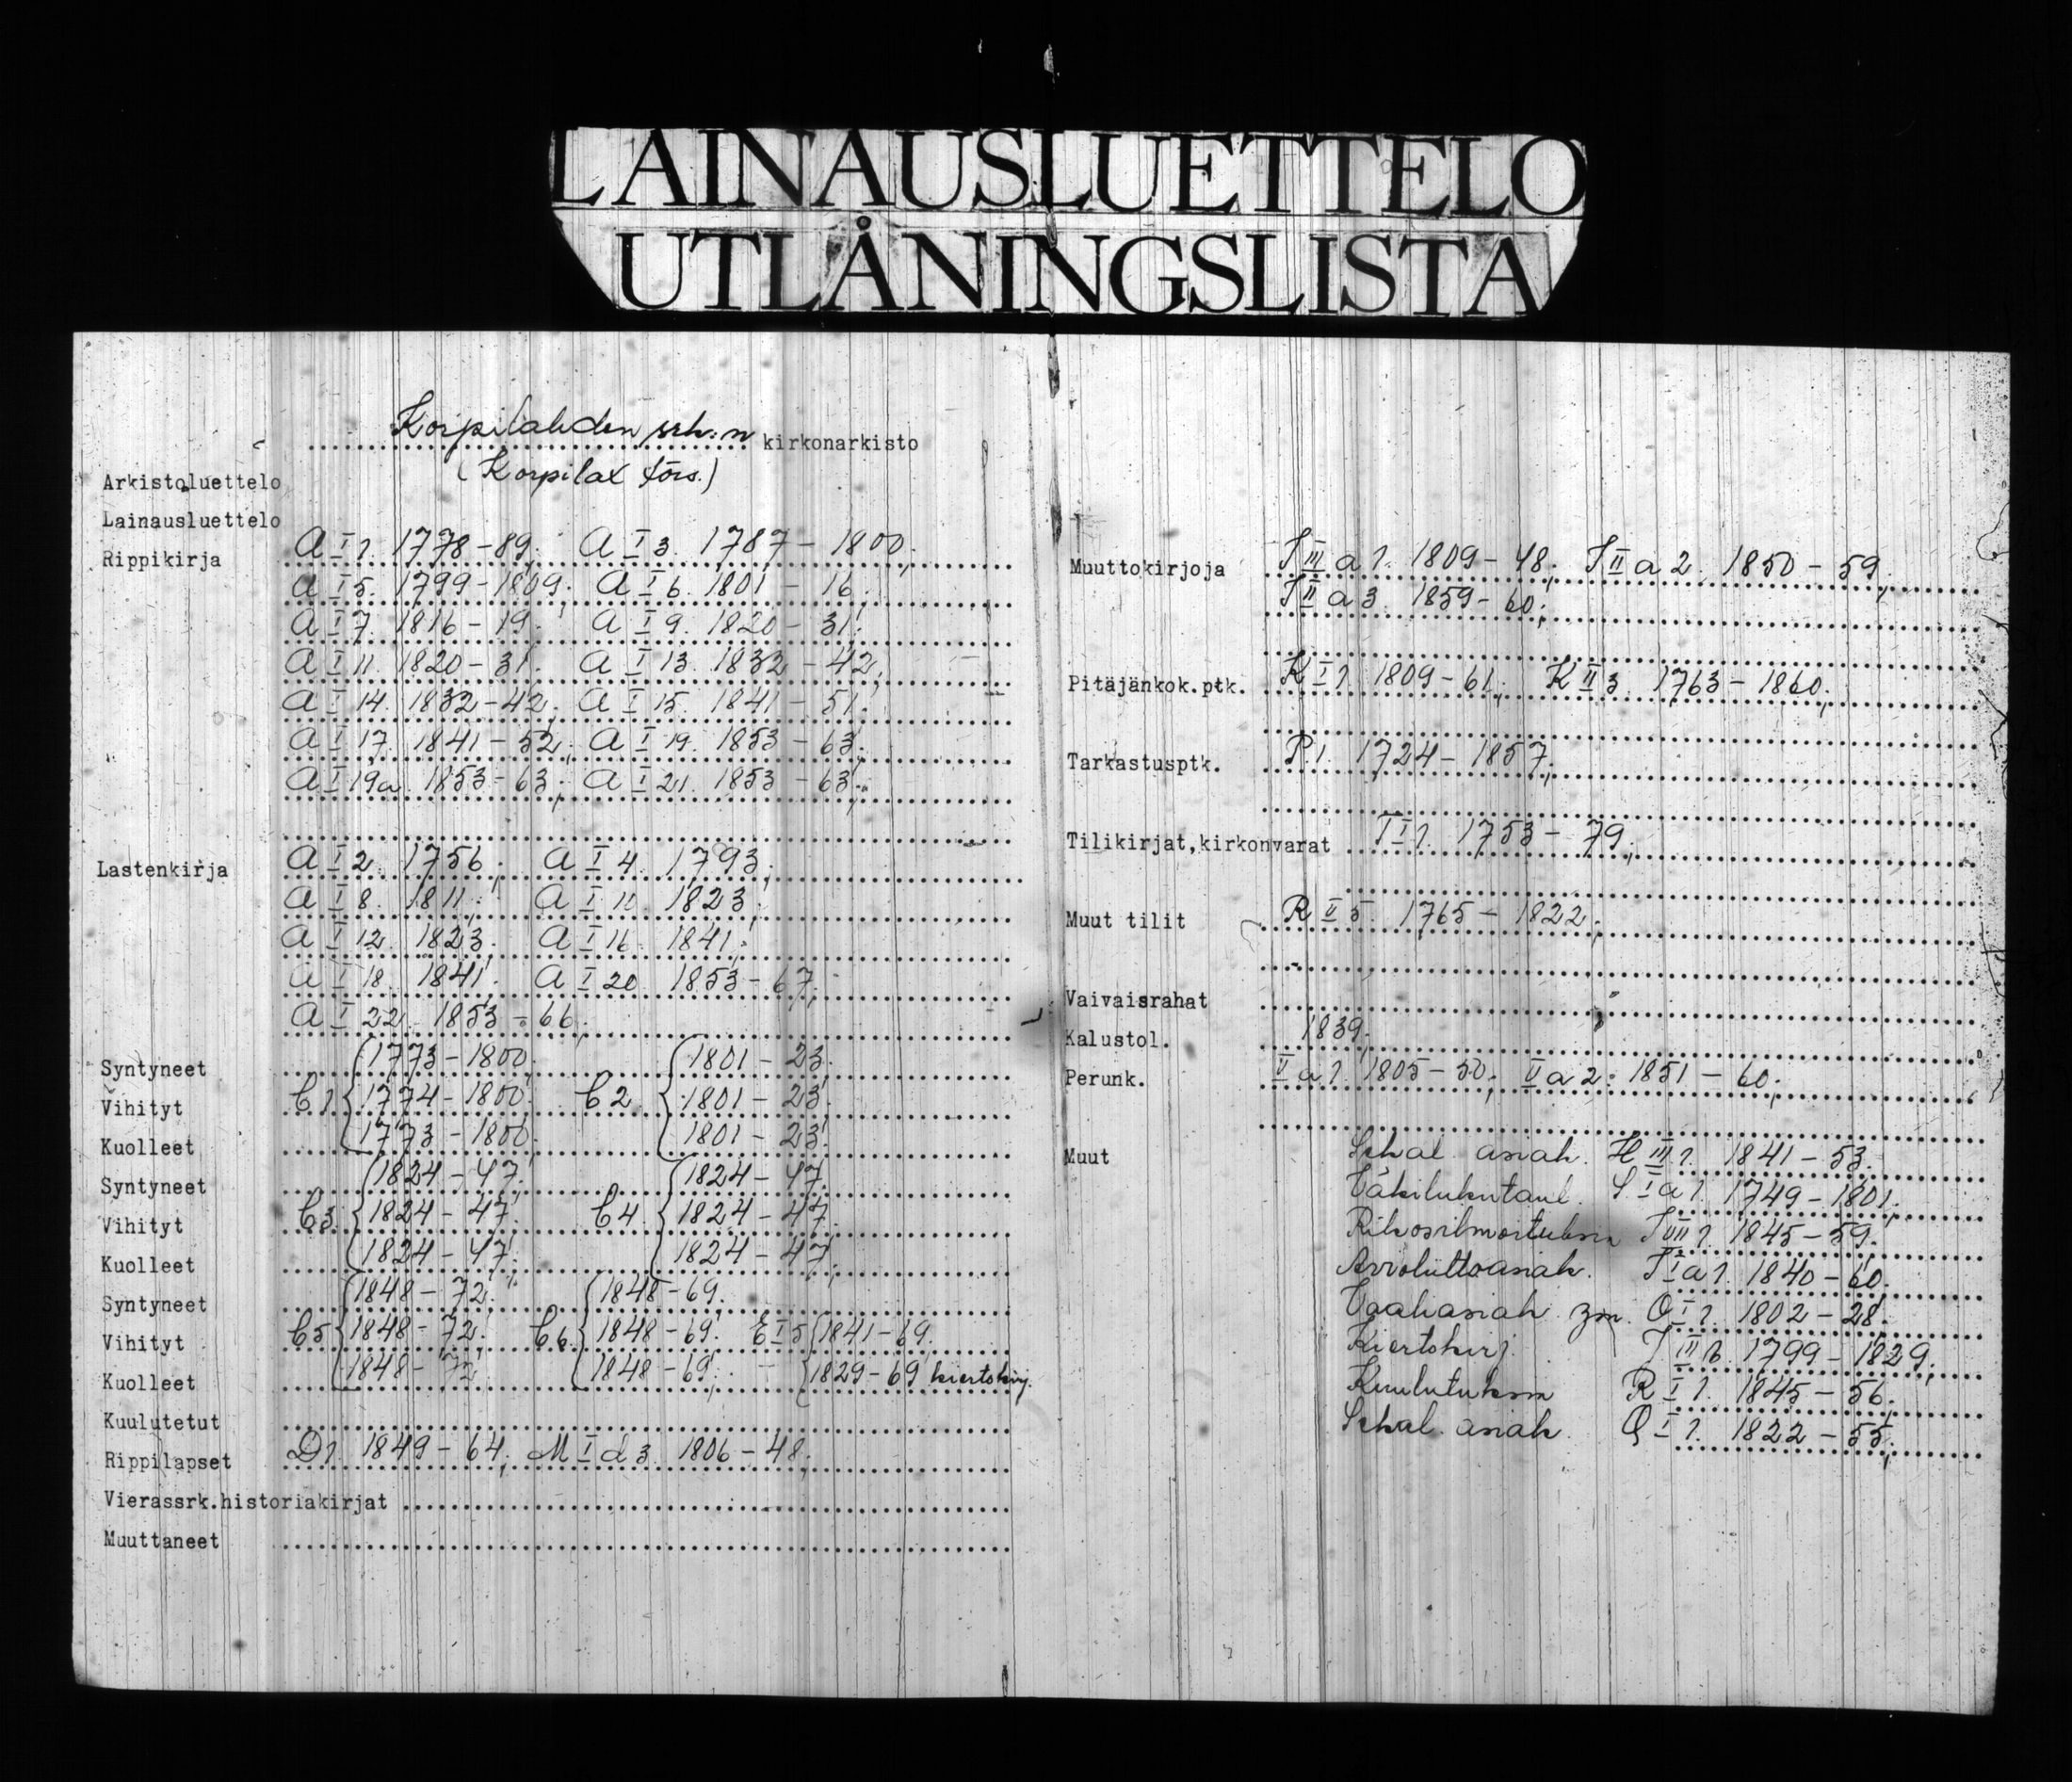 LAINAUSLUETTELO
UTLÅNINGSLISTA
Korpilahden srk:n kirkonarkisto
(Korpilax förs.)
Arkistoluettelo
Lainausluettelo
Rippikirja A I 1. 1778-89; A I 3. 1787-1800;
A I 5. 1799-1809; A I 6. 1801-16;
A I 7. 1816-19; A I 9. 1820-31;
A I 11. 1820-31; A I 13. 1832-42;
A I 14. 1832-42; A I 15. 1841-51;
A I 17. 1841-52; A I 19. 1853-63;
A I 19a. 1853-63; A I 21. 1853-63;
Lastenkirja A I 2. 1756; A I 4. 1793;
A I 8. 1811; A I 10. 1823;
A I 12. 1823; A I 16. 1841;
A I 18. 1841; A I 20. 1853-67;
A I 22. 1853-66;
Syntyneet 1773-1800; 1801-23;
Vihityt C 1 1774-1800; C 2 1801-23;
Kuolleet 1773-1800; 1801-23;
Syntyneet 1824-47; 1824-47;
Vihityt C 3. 1824-47; C 4. 1824-47;
Kuolleet 1824-47; 1824-47;
Syntyneet 1848-72; 1848-69;
Vihityt C 5 1848-72; C 6. 1848-69; E I 5 1841-69;
Kuolleet 1848-72; 1848-69; 1829-69 kiertokirj.
Kuulutetut
Rippilapset D 1. 1849-64; M I d 3. 1806-48;
Vierassrk.historiakirjat
Muuttaneet
Muuttokirjoja J III a 1. 1809-48; J II a 2. 1850-59;
J II a 3. 1859-60;
Pitäjänkok.ptk. K I 1. 1809-61; K II 3. 1763-1860;
Tarkastusptk. P.1. 1724-1857;
Tilikirjat,kirkonvarat T I 1. 1753-79;
Muut tilit R II 5. 1765-1822;
Vaivaisrahat
Kalustol. 1839;
Perunk. II a 1. 1805-50; II a 2. 1851-60;
Muut Sekal. asiak. H III 1. 1841-53;
Väkilukutaul. S I a 1. 1749-1801;
Rikosilmoituksia J VII 1. 1845-59;
Avioliittoasiak. J I a 1. 1840-60;
Vaaliasiak. ym. O I 1. 1802-28;
Kiertokirj. J III b. 1799-1829;
Kuulutuksia R I 1. 1845-56;
Sekal. asiak. Q I 1. 1822-55;